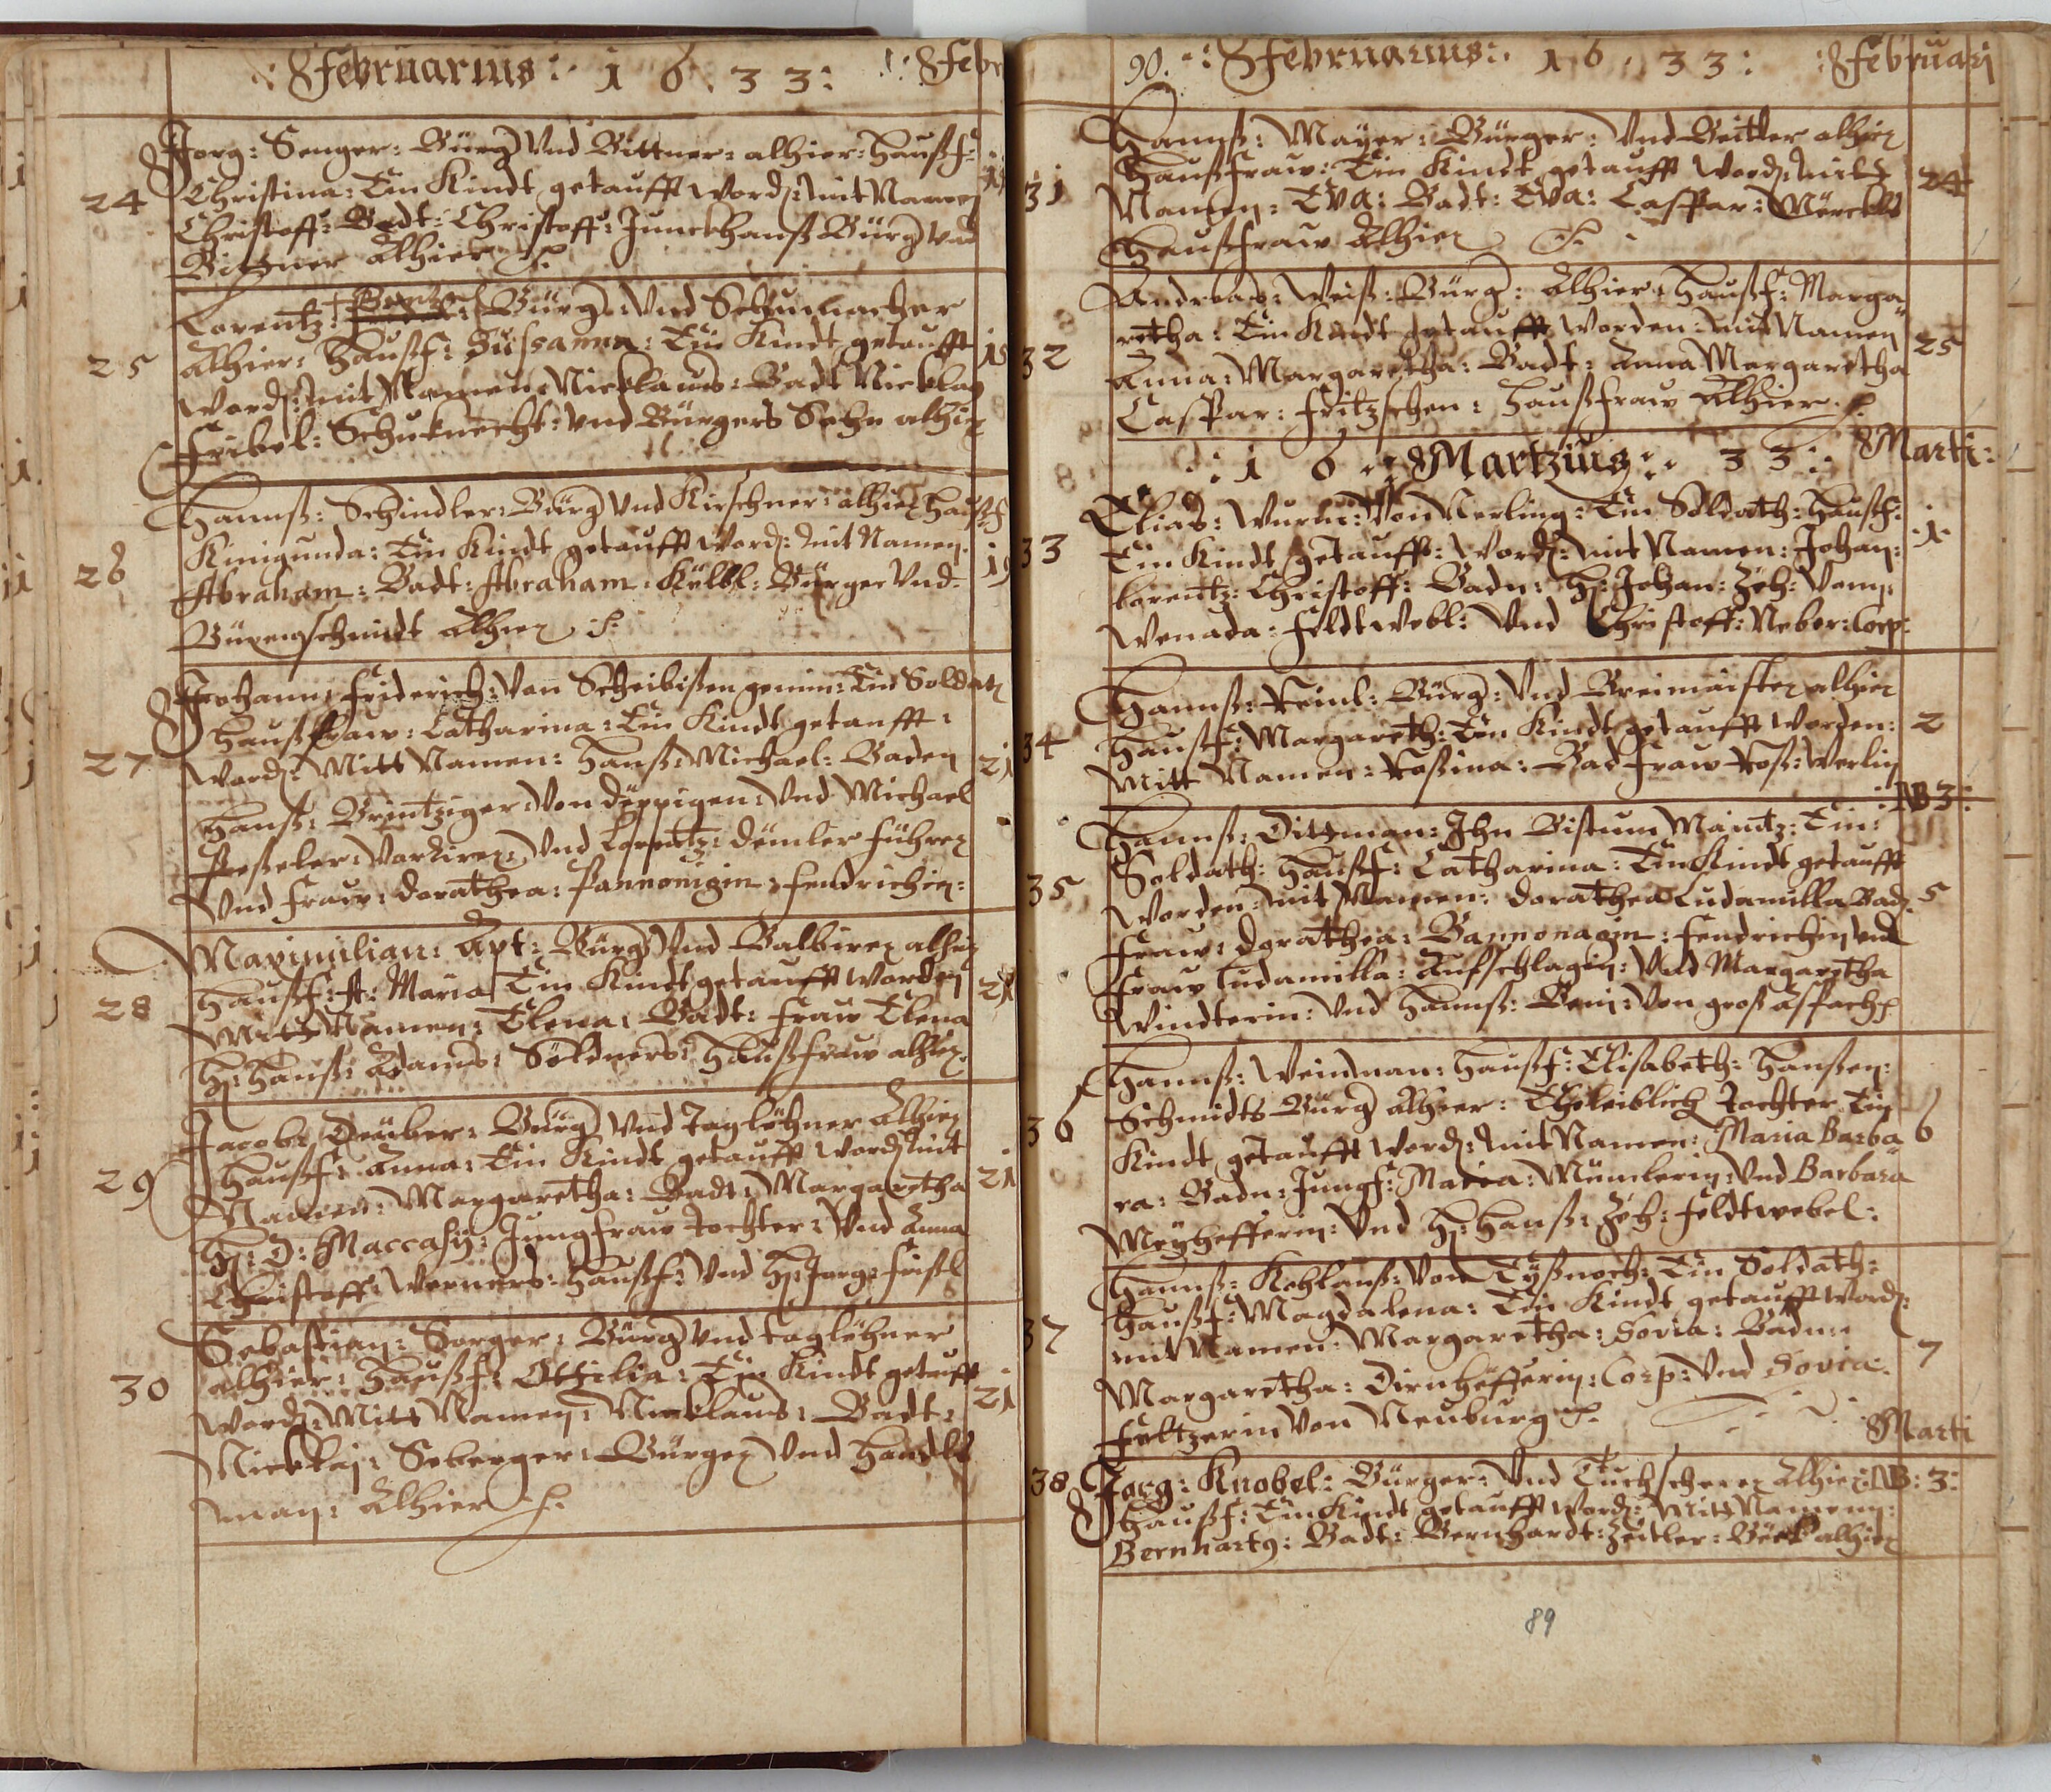 Februarius: 1 6 . 3 3: Febr
Jorg: Senger: Bürg: Vnd Bittner: alhier: haußf:
24 Christina: Ein Kindt getaufft Word: mit Namen
Christoff: Badt: Christoff: Junckhanß Bürg Vnd
Bittner Alhier
Lorentz: Bürg: Vnd Schumacher
25 Alhier: haußf: Sussanna: Ein Kindt getaufft
Word: mit Namen Nicklaus: Badt Nicklas
Fribel: Schuknecht: Vnd Bürgers Sohn alhier
Hannß: Schindler: Bürg Vnd Kirschner: alhier haußf:
26 Kinigunda: Ein Kindt getaufft Word: mit Namen 19
Abraham: Badt: Abraham: Külbl: Bürger Vnd
Büxenschmidt Alhier
Johann: Friderich: Von Ein Soldat
haußfraw: Catharina: Ein Kindt getaufft:
27 Word: Mitt Namen: Hanß: Michael: Baden 21
Hanß: Von Vnd Michael
Vnd Lorentz: Dömler führer
Vnd Fraw: Dorathea: Pannonigin: Fendrichin:
Maximilian: Apt: Bürg Vnd Balbirer alhier
28 haußf: A: Maria Ein Kindt getaufft Worden 21
Mitt Namen: Elena: Badt: Fraw Elena
H: Hanß: Adams: Söldners: haußfraw alhier
Jacob: Deüber: Bürg Vnd Taglöhner Alhier
29 haußf: Anna: Ein Kindt getaufft Word mit 21
Namen: Margaretha: Badt: Margaretha
H: D: Maccasÿ: Jungfraw Tochter: Vnd Anna
Christoff: Werners: haußf: Vnd H: Jorg:
Sebastian: Sorger: Bürg Vnd taglöhner
30 alhier: haußf: Ottilia: Ein Kindt getaufft 21
Word: Mitt Namen: Nicklaus: Badt:
Nicklas: Seberger: Bürger Vnd Handls
man: Alhier
90. Februarius: 1 6 . 3 3: Februari
Hannß: Mayer: Bürger: Vnd Beitler alhier
31 haußfraw: Ein Kindt getaufft Word: mit 24
Namen: Eva: Badt: Eva: Caspar: Mörckls
haußfraw Alhier
Andreas: Weiß: Bürg: Alhier: haußf: Marga
32 retha: Ein Kindt getaufft Worden: mit Namen 25
Anna: Margaretha: Badt: Anna Margaretha
Caspar: Fritzschen: haußfraw Alhier
1 6 Martzius: 3 3: Marti:
Elias: Wurm: Von Nerling: Ein Soldath: haußf:
33 Ein Kindt getaufft: Word: mit Namen: Johan: 1
Lorentz: Christoff: Badn: H: Johan: Zöh: Vom
Wenada: Feldtwebl: Vnd Christoff: Neber: Corp:
Hannß: Keinl: Bürg: Vnd Breimaister alhier
34 haußf: Margareth: Ein Kindt getaufft Worden: 2
Mitt Namen: Rosina: Bad Fraw Ros: Werlin
NB 3:
Hannß: Dittman: Jhn Bistum Maintz: Ein:
Soldath: haußf: Catharina: Ein Kindt getaufft
35 Worden: mit Namen: Dorathea Ludamilla Bad: 5
Fraw: Dorathea: Bannonagin: Fendrichin Vnd
Fraw Ludamilla: Aufschlagin: Vnd Margaretha
Windterin: Vnd Hannß: Beni: Von groß
Hannß: Weinman: haußf: Elisabeth: Hanßen:
Schmidts Bürg Alhier: Eheleiblich Tochter Ein
36 Kindt getaufft Word: mit Namen: Maria Barba 6
ra: Badn: Jungf: Maria: Mümlerin: Vnd Barbara
Meÿhefferin: Vnd H: Hanß: Zöh: Feldtwebel:
Hannß: Kohlanß: Von Ein Soldath:
37 haußf: Magdalena: Ein Kindt getaufft Word:
mit Namen: Margaretha: Sovia: Badn: 7
Margaretha: Dirnhöfferin: Corp: Vnd Sovia:
Von Neuburg
Marti
38 Jorg: Knobel: Bürger: Vnd Tuchscherer Alhier: NB: 3:
haußf: Ein Kindt getaufft Word: Mitt Namenn:
Bernhart9: Badt: Bernhardt: Zeitler: Böck alhier
89